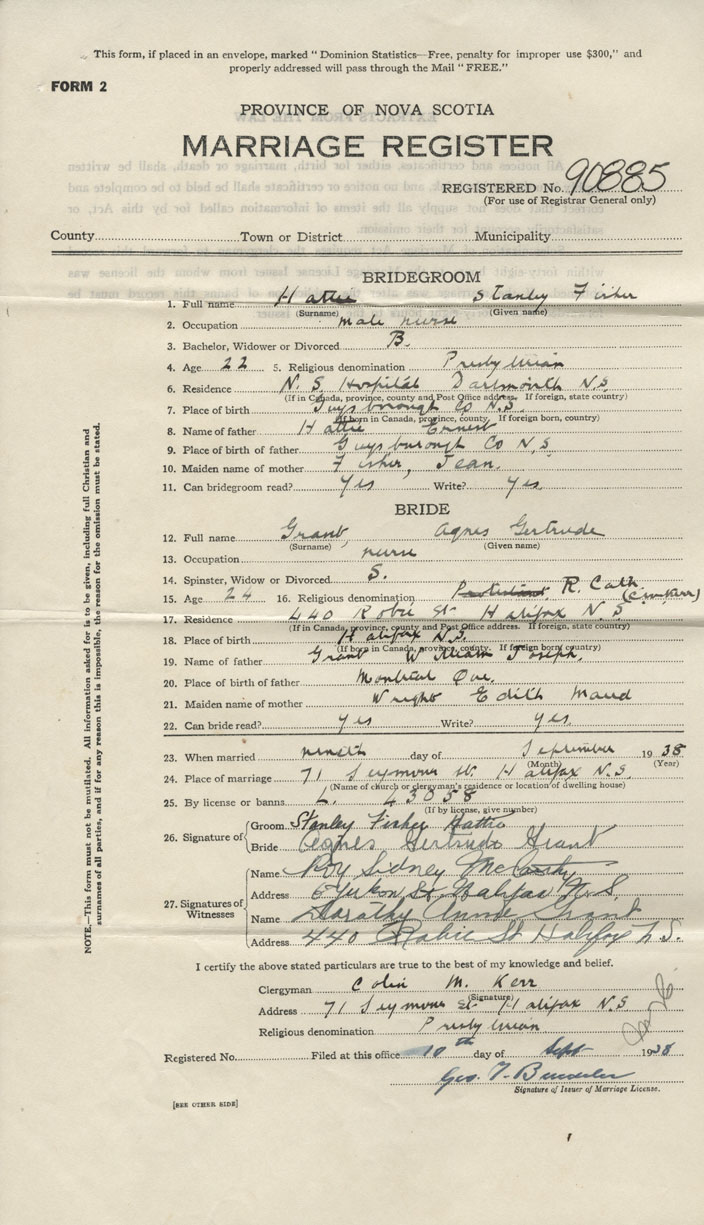 This form, if placed in an envelope, marked "Dominion Statistics—Free, penalty for improper use $300," and
properly addressed will pass through the Mail "FREE."
FORM 2
PROVINCE OF NOVA SCOTIA
MARRIAGE REGISTER
REGISTERED No. 90885
(For use of Registrar General only)
County Town or District Municipality
BRIDEGROOM
1. Full name Hattie Stanley Fisher
(Surname) (Given name)
2. Occupation male nurse
3. Bachelor, Widower or Divorced B.
4. Age 22 5. Religious denomination Presbyterian
6. Residence N. S. Hospital Dartmouth N.S.
(If in Canada, province, county and Post Office address. If foreign, state country)
7. Place of birth Guysborough Co N.S.
(If born in Canada, province, county. If foreign born, country)
8. Name of father Hattie Ernest
9. Place of birth of father Guysborough Co N.S.
10. Maiden name of mother Fisher, Jean.
11. Can bridegroom read? Yes Write? Yes.
BRIDE
12. Full name Grant, Agnes Gertrude
(Surname) (Given name)
13. Occupation nurse
14. Spinster, Widow or Divorced S.
15. Age 24 16. Religious denomination Protestant R. Cath.
17. Residence 440 Robie St Halifax N.S.
(If in Canada, province, county and Post Office address. If foreign, state country)
18. Place of birth Halifax N.S.
(If born in Canada, province, county. If foreign born, country)
19. Name of father Grant William Joseph.
20. Place of birth of father Montreal Que.
21. Maiden name of mother Wright Edith Maud
22. Can bride read? Yes Write? Yes.
23. When married ninth day of September 1938
(Month) (Year)
24. Place of marriage 71 Seymour St. Halifax N.S.
(Name of church or clergyman's residence or location of dwelling house)
25. By license or banns L. 43058
(If by license, give number)
26. Signature of
Groom Stanley Fisher Hattie
Bride Agnes Gertrude Grant
27. Signatures of Witnesses
Name Roy Sidney McCarthy
Address 6 Yukon St. Halifax N.S.
Name Dorothy Annie Grant
Address 440 Robie St Halifax N.S.
I certify the above stated particulars are true to the best of my knowledge and belief.
Clergyman Colin M. Kerr
(Signature)
Address 71 Seymour St Halifax N.S
Religious denomination Presbyterian
Registered No. Filed at this office 10th day of Sept 1938
Geo.
Signature of Issuer of Marriage License.
[SEE OTHER SIDE]
NOTE.—This form must not be mutilated. All information asked for is to be given, including full Christian and
surnames of all parties, and if for any reason this is impossible, the reason for the omission must be stated.